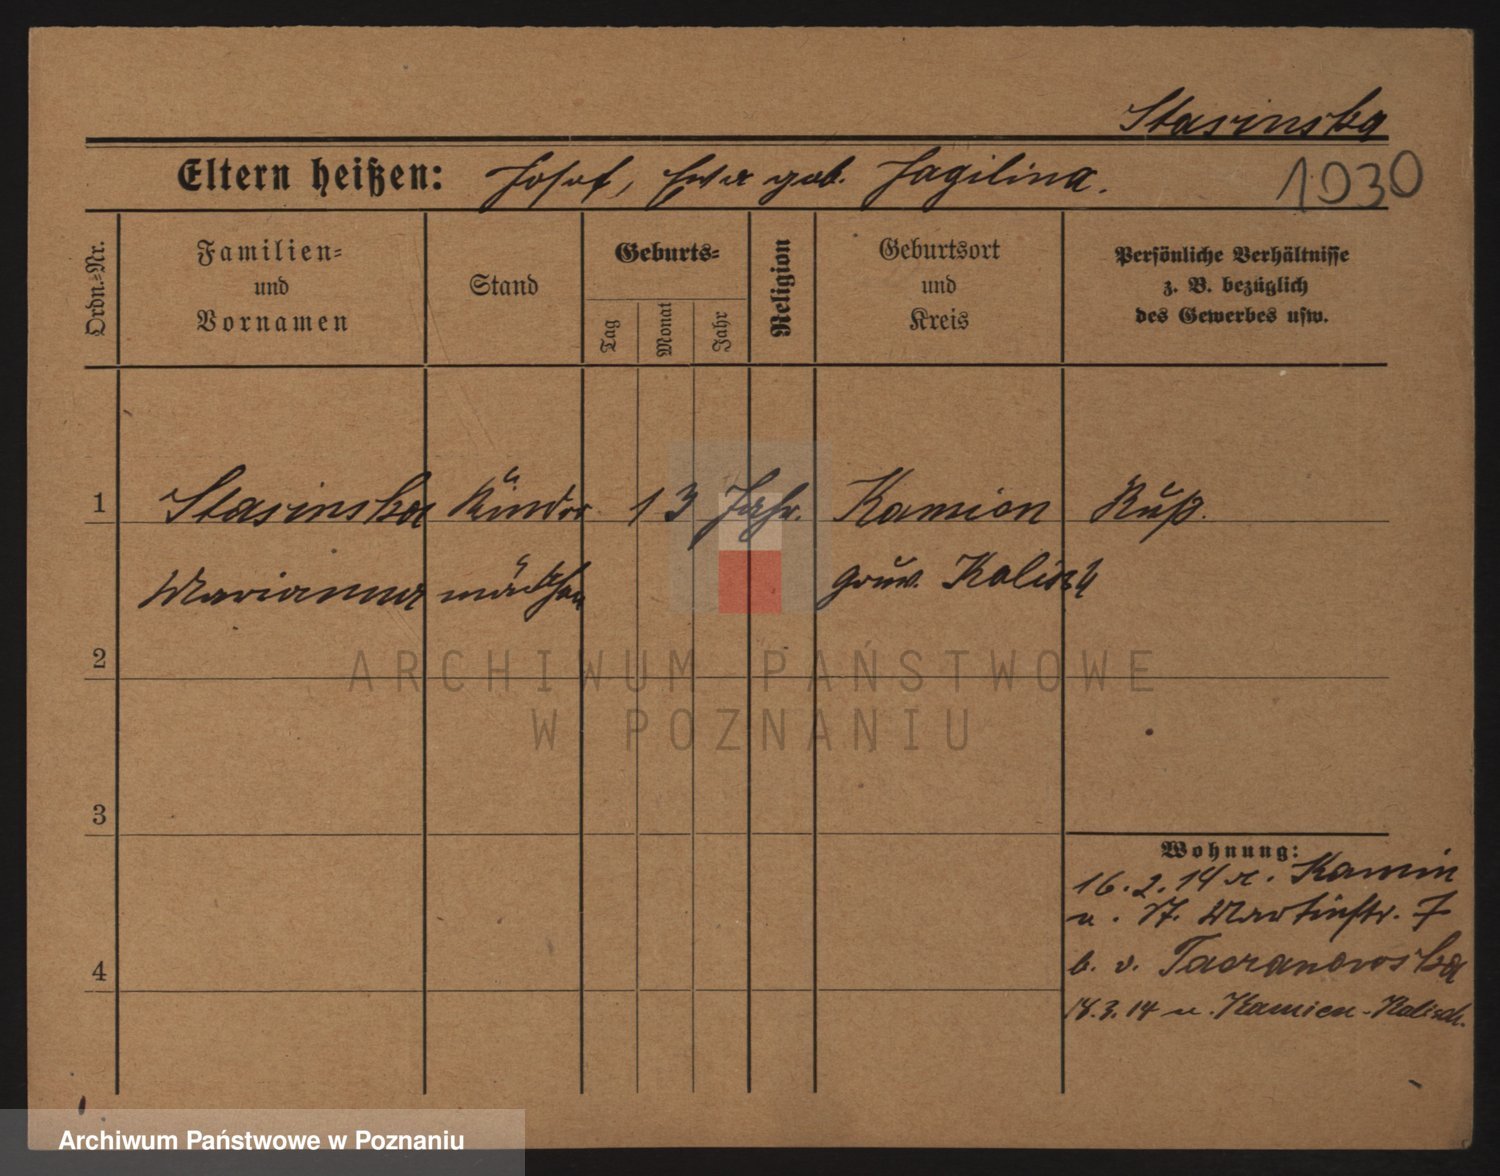 Stasinska
Eltern heißen: Josef, Ewa geb. Jagilina.
1030
Ordn.-Nr.
Familien-
und
Vornamen
Stand
Geburts-
Tag
Monat
Jahr
Religion
Geburtsort
und
Kreis
Persönliche Verhältnisse
z. B. bezüglich
des Gewerbes usw.
1
Stasinska Kinder 13 Jahr. Kamion Ruß.
Marianna mädchen gouv. Kalisch
2
ARCHIWUM PAŃSTWOWE
W POZNANIU
3
Wohnung:
16.2.14 v. Kamin
n. St. Martinstr. 7
b. v.
4
18.3.14 n. Kamien-Kalisch.
Archiwum Państwowe w Poznaniu